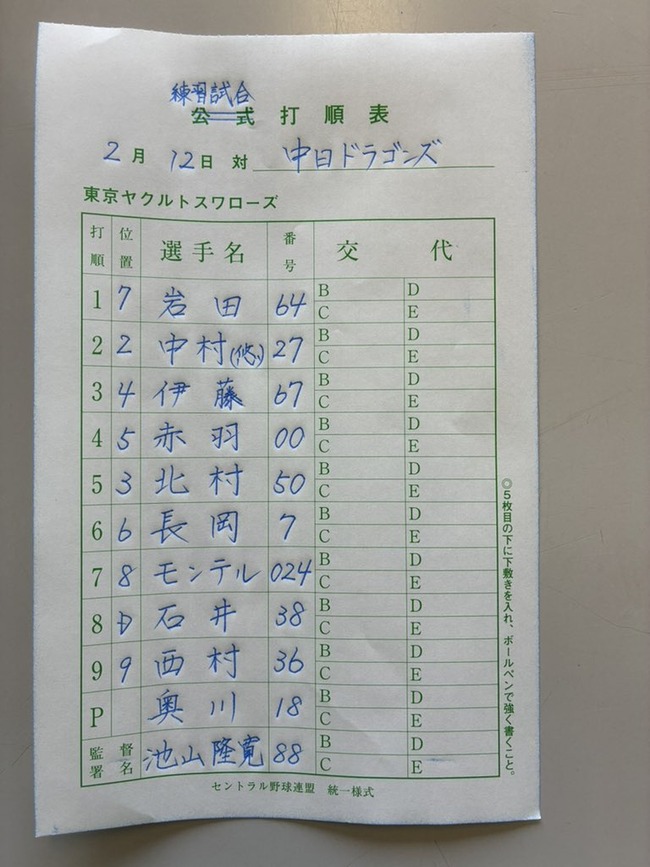 練習試合
公式打順表
2月12日 対 中日ドラゴンズ
東京ヤクルトスワローズ
打順 位置 選手名 番号 交代
1 7 岩田 64 B D C E
2 2 中村(悠) 27 B D C E
3 4 伊藤 67 B D C E
4 5 赤羽 00 B D C E
5 3 北村 50 B D C E
6 6 長岡 7 B D C E
7 8 モンテル 024 B D C E
8 D 石井 38 B D C E
9 9 西村 36 B D C E
P 奥川 18 B D C E
監督署名 池山隆寛 88 B D C E
◎5枚目の下に下敷きを入れ、ボールペンで強く書くこと。
セントラル野球連盟 統一様式